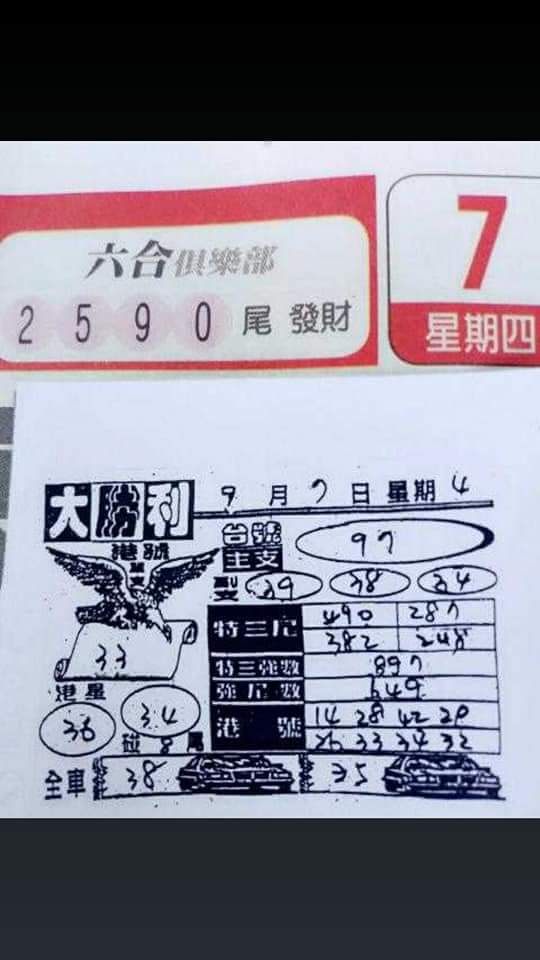 六合俱樂部
2 5 9 0 尾 發財
7
星期四
大勝利
9月7日星期4
港號
單支
台號
主支
97
副支
39 38 34
33
特三尾
490 287
382 248
特三強數
897
強尾數
649
港號
14 28 42 20
26 33 34 32
港星
36
34
碰8尾
全車
38
35